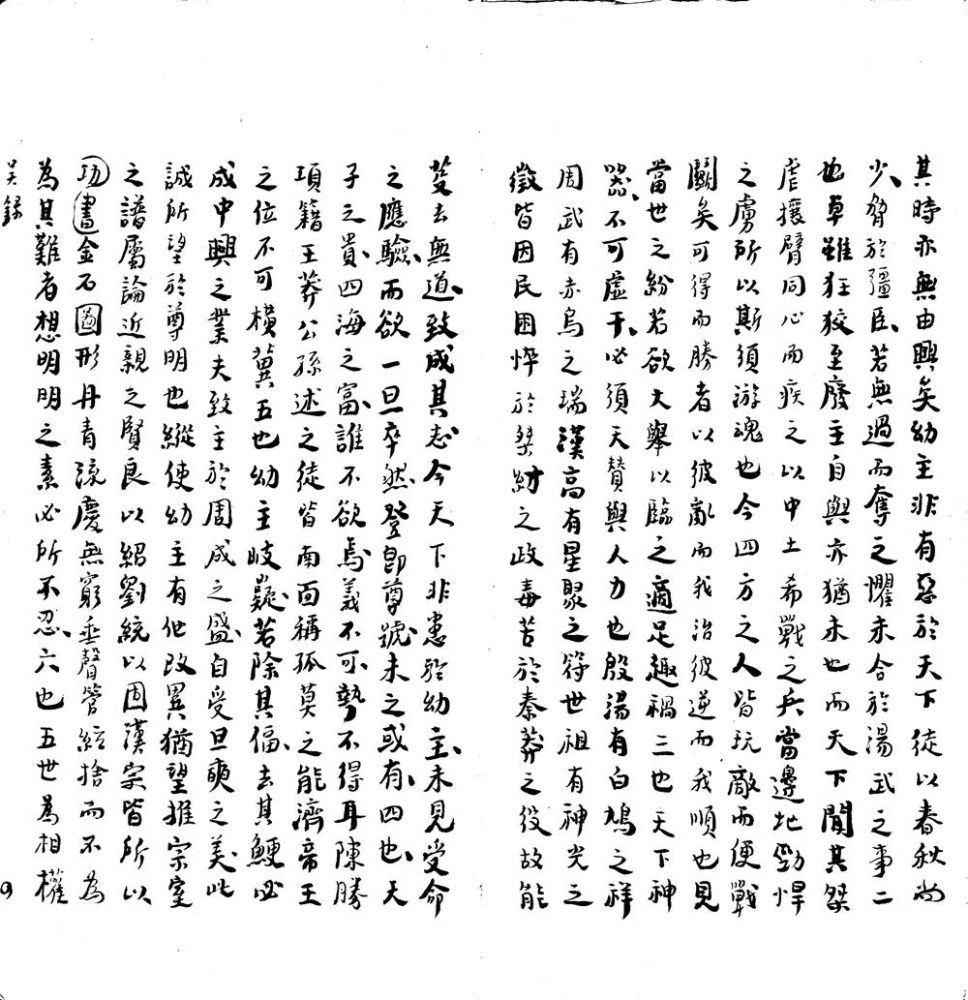 其時亦無由興矣幼主非有惡於天下徒以春秋尚
少脅於彊臣若無過而奪之懼未合於湯武之事二
也卓雖狂狡至廢主自與亦猶未也而天下聞其桀
虐攘臂同心而疾之以中土希戰之兵當邊地勁悍
之虜所以斯須游魂也今四方之人皆玩敵而便戰
鬭矣可得而勝者以彼亂而我治彼逆而我順也見
當世之紛若欲大舉以臨之適足趣禍三也天下神
器不可虛干必須天贊與人力也殷湯有白鳩之祥
周武有赤烏之瑞漢高有星聚之符世祖有神光之
徵皆因民困悴於桀紂之政毒苦於秦莽之役故能
芟去無道致成其志今天下非患於幼主未見受命
之應驗而欲一旦卒然登即尊號未之或有四也天
子之貴四海之富誰不欲焉義不可勢不得耳陳勝
項籍王莽公孫述之徒皆南面稱孤莫之能濟帝王
之位不可橫冀五也幼主岐嶷若除其偪去其鯁必
成中興之業夫致主於周成之盛自受旦奭之美此
誠所望於尊明也縱使幼主有他改異猶望推宗室
之譜屬論近親之賢良以紹劉統以固漢宗皆所以
功書金石圖形丹青流慶無窮垂聲管絃捨而不為
為其難者想明明之素必所不忍六也五世為相權
吳錄
9